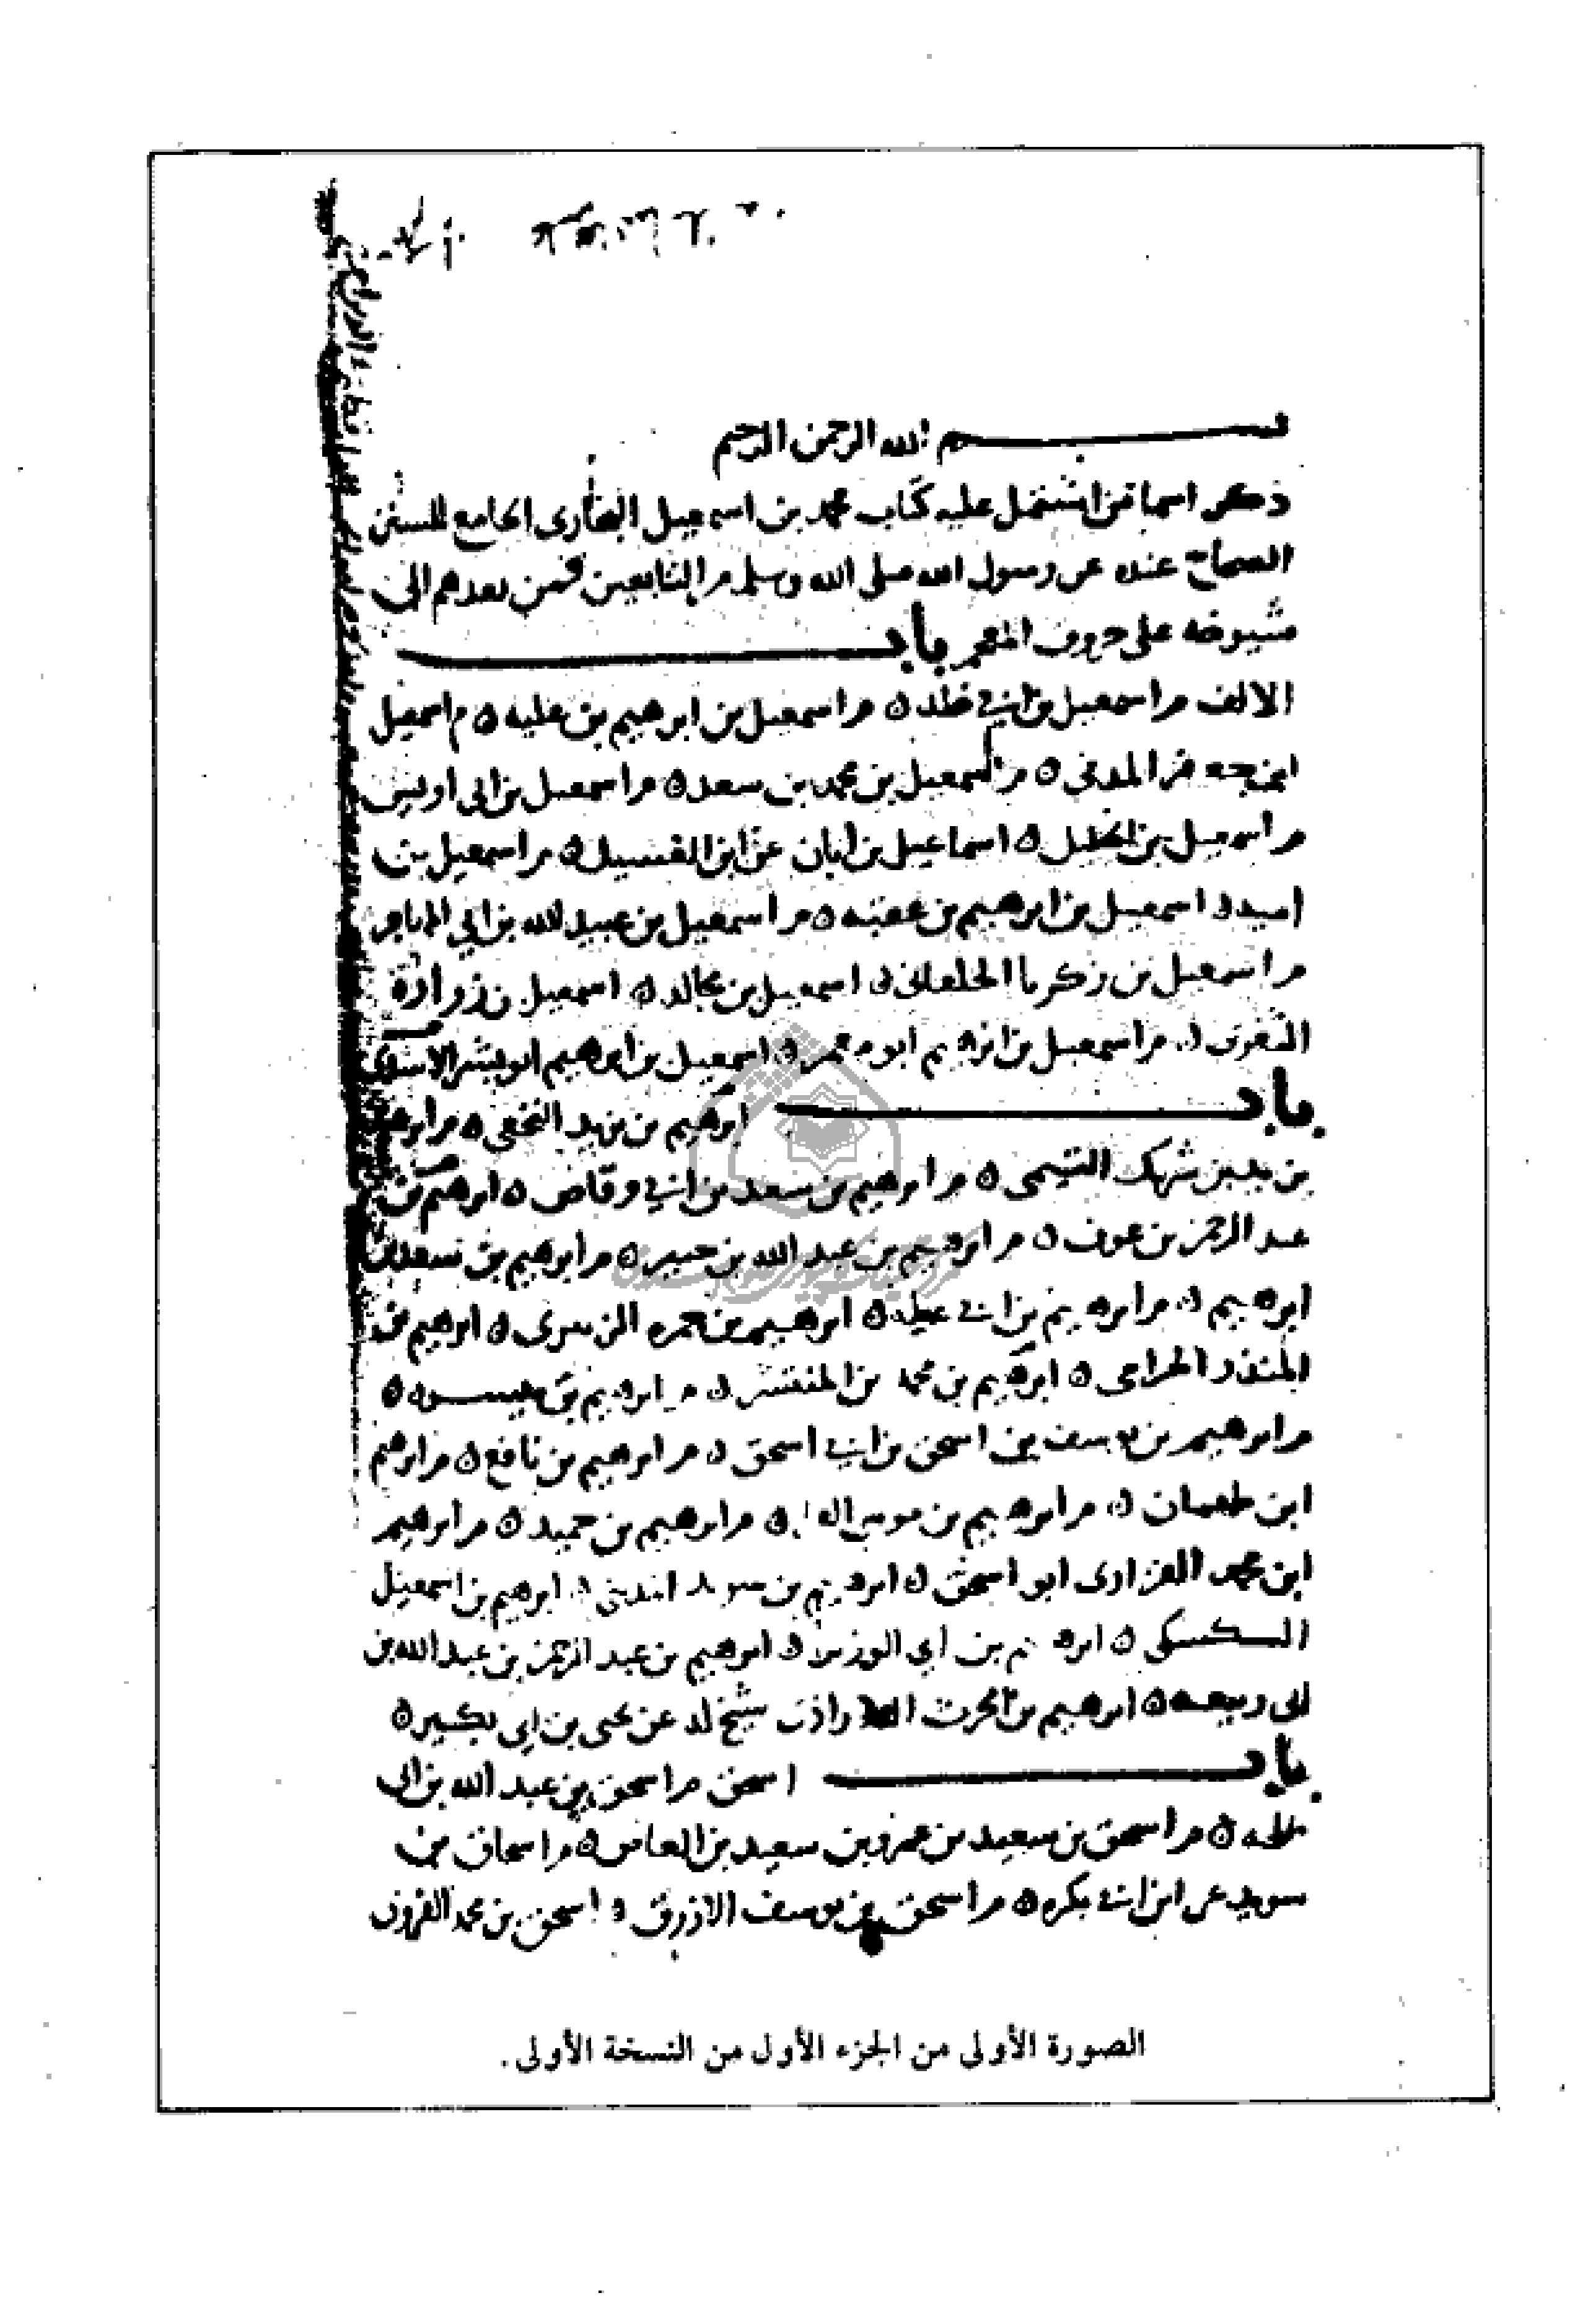 بسم الله الرحمن الرحيم
ذكر اسما من اشتمل عليه كتاب محمد بن اسمعيل البخارى الجامع للسنن
الصحاح عنده عن رسول الله صلى الله وسلم من التابعين فمن بعدهم الى
شيوخه على حروف المعجم باب
الالف م اسمعيل بن ابي خلد ٥ م اسمعيل بن ابرهيم بن عليه ٥ م اسمعيل
ابن جعفر المدنى ٥ م اسمعيل بن محمد بن سعد ٥ م اسمعيل بن ابى اويس
م اسمعيل بن الخليل ٥ اسماعيل بن ابان عن ابن الغسيل ٥ م اسمعيل بن
اميه ٥ اسمعيل بن ابرهيم بن عقبه ٥ م اسمعيل بن عبيد الله بن ابي المهاجر
م اسمعيل بن زكريا الخلقانى ٥ اسمعيل بن مجالد ٥ اسمعيل بن زرارة
الثغرى ٥ م اسمعيل بن ابرهيم ابو معمر ٥ اسمعيل بن ابرهيم ابو بشر الاسدى
باب ابرهيم بن يزيد النخعى ٥ م ابرهيم
بن يزيد بن شريك التيمى ٥ م ابرهيم بن سعد بن ابي وقاص ٥ ابرهيم بن
عبد الرحمن بن عوف ٥ م ابرهيم بن عبد الله بن حنين ٥ م ابرهيم بن سعد بن
ابرهيم ٥ م ابرهيم بن ابي عبله ٥ ابرهيم بن حمزه الزبيرى ٥ ابرهيم بن
المنذر الحزامى ٥ ابرهيم بن محمد بن المنتشر ٥ م ابرهيم بن ميسره ٥
م ابرهيم بن يوسف بن اسحق بن ابي اسحق ٥ م ابرهيم بن نافع ٥ م ابرهيم
ابن طهمان ٥ م ابرهيم بن موسى ٥ م ابرهيم بن حميد ٥ م ابرهيم
ابن محمد الفزارى ابو اسحق ٥ ابرهيم بن سويد المدينى ٥ ابرهيم بن اسمعيل
السكسكى ٥ ابرهيم بن ابي الوزير ٥ ابرهيم بن عبد الرحمن بن عبد الله بن
ابى ربيعه ٥ ابرهيم بن الحرث شيخ له عن يحيى بن ابي بكير ٥
باب اسحق م اسحق بن عبد الله بن ابى
طلحه ٥ م اسحق بن سعيد بن عمرو بن سعيد بن العاص ٥ م اسحاق بن
سويد عن ابن ابي بكره ٥ م اسحق بن يوسف الازرق ٥ اسحق بن محمد الفروى
الصورة الأولى من الجزء الأول من النسخة الأولى .